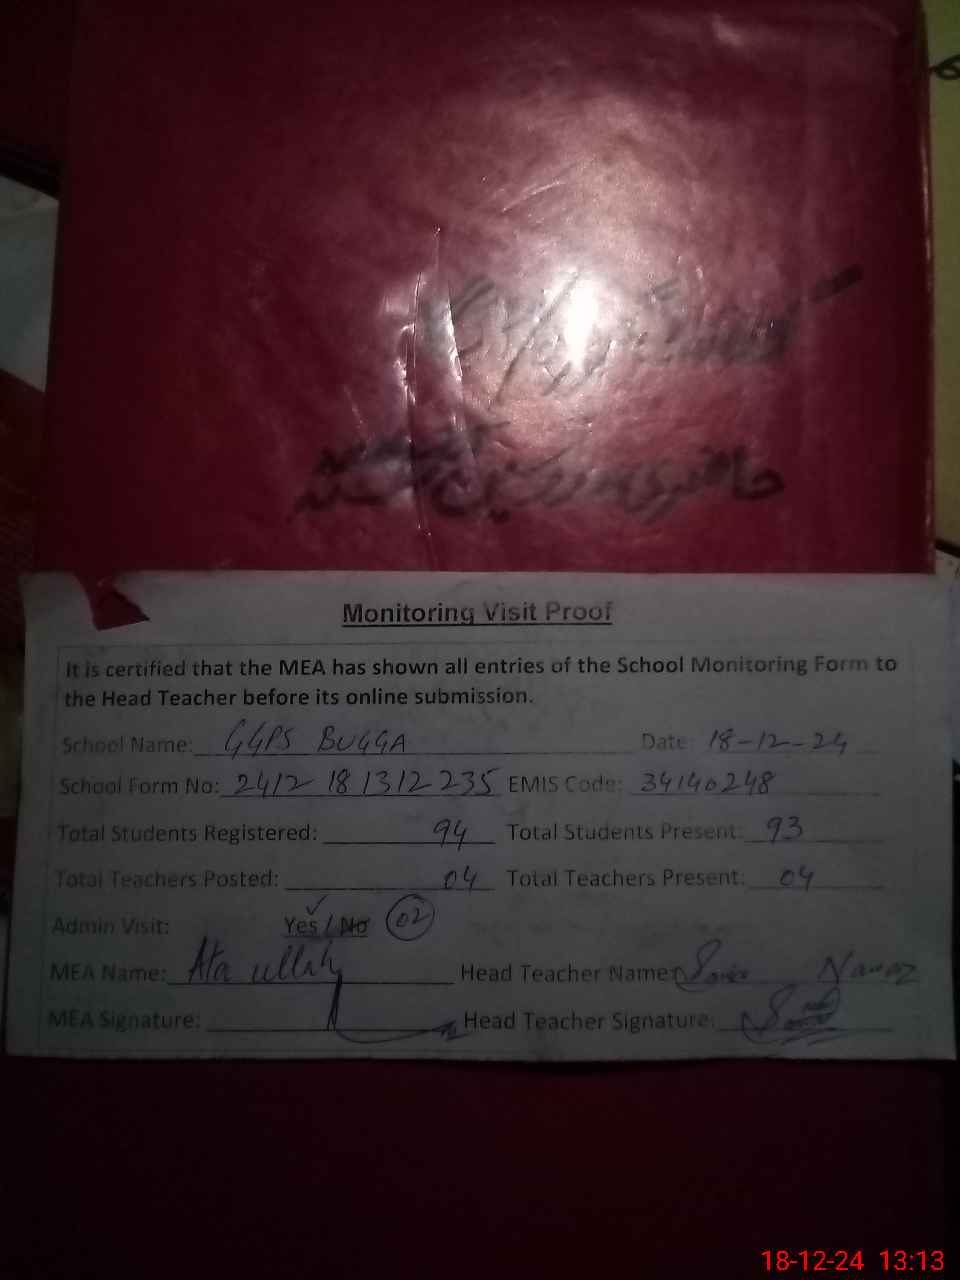 حاضری
Monitoring Visit Proof
It is certified that the MEA has shown all entries of the School Monitoring Form to
the Head Teacher before its online submission.
School Name: GGPS BUGGA Date: 18-12-24
School Form No: 2412 18 1312 235 EMIS Code: 34140248
Total Students Registered: 94 Total Students Present: 93
Total Teachers Posted: 04 Total Teachers Present: 04
Admin Visit: Yes / No 02
MEA Name: Ata ullah Head Teacher Name: Nawaz
MEA Signature: Head Teacher Signature:
18-12-24 13:13